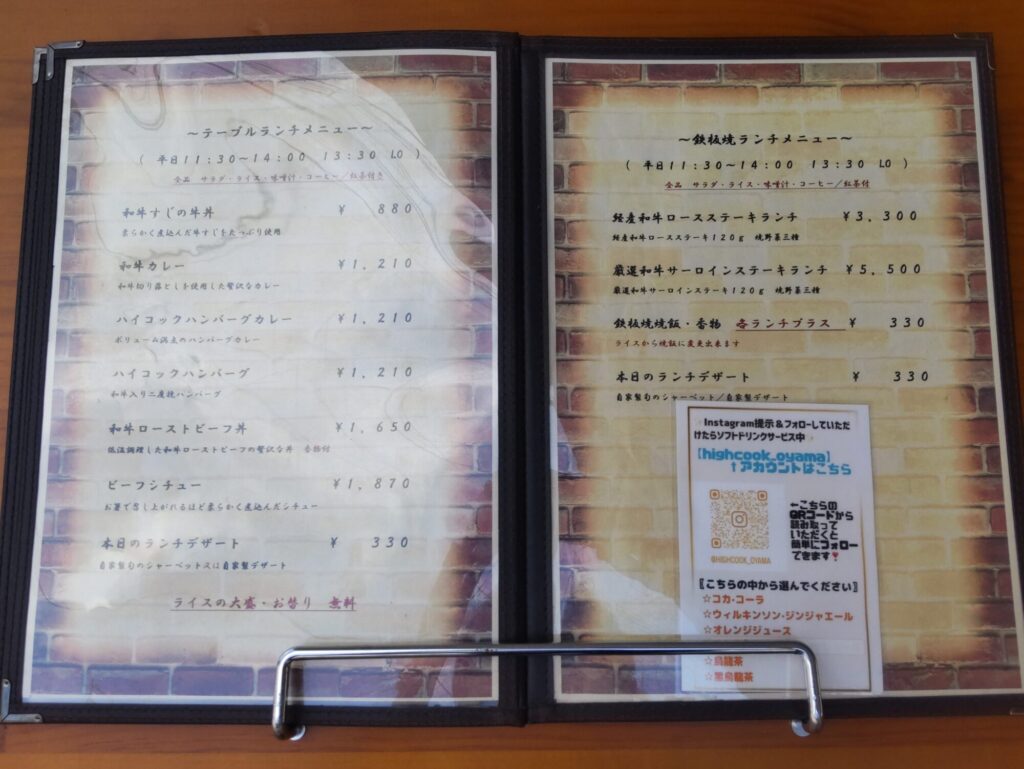 ～テーブルランチメニュー～
( 平日11:30～14:00 13:30 LO )
全品 サラダ・ライス・味噌汁・コーヒー／紅茶付き
和牛すじの牛丼 ￥ 880
柔らかく煮込んだ牛すじをたっぷり使用
和牛カレー ￥1,210
和牛切り落としを使用した贅沢なカレー
ハイコックハンバーグカレー ￥1,210
ボリューム満点のハンバーグカレー
ハイコックハンバーグ ￥1,210
和牛入り二度挽ハンバーグ
和牛ローストビーフ丼 ￥1,650
低温調理した和牛ローストビーフの贅沢な丼 香物付
ビーフシチュー ￥1,870
お箸で召し上がれるほど柔らかく煮込んだシチュー
本日のランチデザート ￥ 330
自家製旬のシャーベット又は自家製デザート
ライスの大盛・お替り 無料
～鉄板焼ランチメニュー～
( 平日11:30～14:00 13:30 LO )
全品 サラダ・ライス・味噌汁・コーヒー／紅茶付
経産和牛ロースステーキランチ ￥3,300
経産和牛ロースステーキ120g 焼野菜三種
厳選和牛サーロインステーキランチ ￥5,500
厳選和牛サーロインステーキ120g 焼野菜三種
鉄板焼焼飯・香物 各ランチプラス ￥ 330
ライスから焼飯に変更出来ます
本日のランチデザート ￥ 330
自家製旬のシャーベット／自家製デザート
Instagram提示＆フォローしていただ
けたらソフトドリンクサービス中
【highcook_oyama】
↑アカウントはこちら
←こちらの
QRコードから
読みとって
いただくと
簡単にフォロー
できます❣
@HIGHCOOK_OYAMA
〖こちらの中から選んでください〗
☆コカ・コーラ
☆ウィルキンソン・ジンジャエール
☆オレンジジュース
☆烏龍茶
☆黒烏龍茶